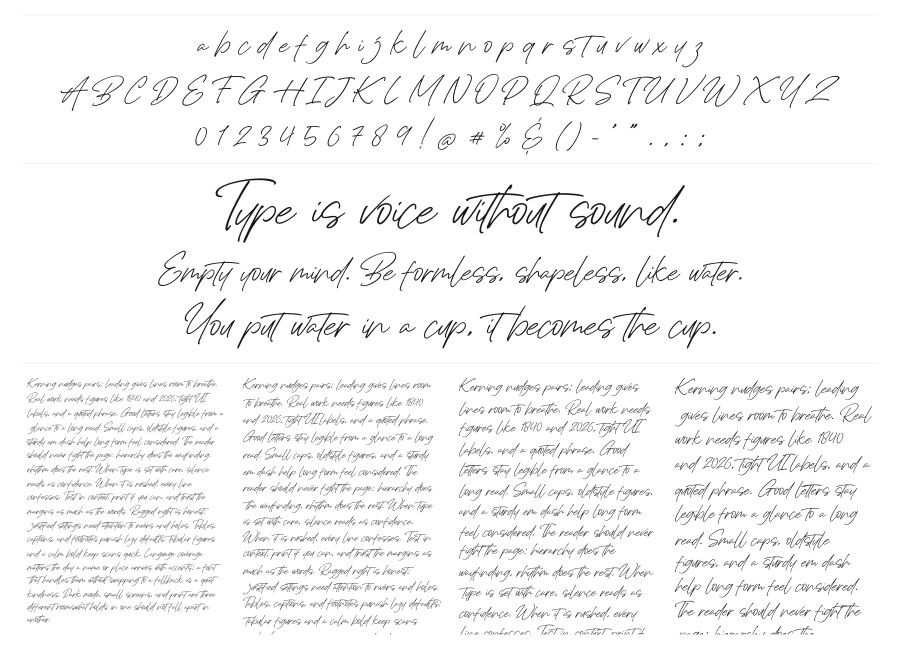 a b c d e f g h i j k l m n o p q r s t u v w x y z
A B C D E F G H I J K L M N O P Q R S T U V W X Y Z
0 1 2 3 4 5 6 7 8 9 ! @ # % & ( ) - ' " . , : ;
Type is voice without sound.
Empty your mind. Be formless, shapeless, like water.
You put water in a cup, it becomes the cup.
Kerning nudges pairs; leading gives lines room to breathe.
Real work needs figures like 1840 and 2026, tight UI
labels, and a quoted phrase. Good letters stay legible from a
glance to a long read. Small caps, oldstyle figures, and a
sturdy em dash help long form feel considered. The reader
should never fight the page; hierarchy does the wayfinding,
rhythm does the rest. When type is set with care, silence
reads as confidence. When it is rushed, every line
confesses. Test in context, print if you can, and trust the
margins as much as the words. Ragged right is honest;
justified settings need attention to rivers and holes. Tables,
captions, and footnotes punish lazy defaults. Tabular figures
and a calm bold keep scans quick. Language coverage
matters the day a name or place arrives with accents; a font
that handles them without swapping to a fallback is a quiet
kindness. Dark mode, small screens, and print are three
different rooms; what holds in one should not fall apart in
another.
Kerning nudges pairs; leading gives lines room
to breathe. Real work needs figures like 1840
and 2026, tight UI labels, and a quoted phrase.
Good letters stay legible from a glance to a long
read. Small caps, oldstyle figures, and a sturdy
em dash help long form feel considered. The
reader should never fight the page; hierarchy does
the wayfinding, rhythm does the rest. When type
is set with care, silence reads as confidence.
When it is rushed, every line confesses. Test in
context, print if you can, and trust the margins as
much as the words. Ragged right is honest;
justified settings need attention to rivers and holes.
Tables, captions, and footnotes punish lazy defaults.
Tabular figures and a calm bold keep scans
Kerning nudges pairs; leading gives
lines room to breathe. Real work needs
figures like 1840 and 2026, tight UI
labels, and a quoted phrase. Good
letters stay legible from a glance to a
long read. Small caps, oldstyle figures,
and a sturdy em dash help long form
feel considered. The reader should never
fight the page; hierarchy does the
wayfinding, rhythm does the rest. When
type is set with care, silence reads as
confidence. When it is rushed, every
line confesses. Test in context, print if
Kerning nudges pairs; leading
gives lines room to breathe. Real
work needs figures like 1840
and 2026, tight UI labels, and a
quoted phrase. Good letters stay
legible from a glance to a long
read. Small caps, oldstyle
figures, and a sturdy em dash
help long form feel considered.
The reader should never fight the
page; hierarchy does the